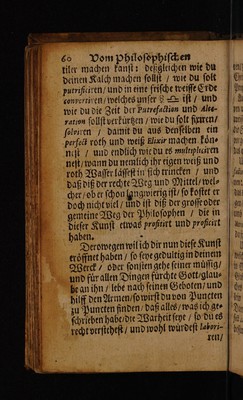 60 Vom Philosophischen
tiler machen kanst: deßgleichen wie du
deinen Kalch machen sollst / wie du solt
putrificirn/ und in eine frische weisse Erde
convertirn/ welches unser ist / und
wie du die Zeit der Putrefaction und Alte-
ration solst verkürtzen / wie du solt fixiren/
solviren / damit du aus denselben ein
perfect roth und weiß Elixir machen kön-
nest / und endlich wie du es multipliciren
nest/ wann du nemlich ihr eigen weiß und
roth Wasser lässest in sich trincken / und
daß diß der rechte Weg und Mittel/ wel-
cher / ob er schon langwierig ist / so kostet er
doch nicht viel / und ist diß der grosse oder
gemeine Weg der Philosophen / die in
dieser Kunst etwas profitiert und profitirt
haben.
Derowegen wil ich dir nun diese Kunst
eröffnet haben / so sey gedultig in deinem
Werck / oder sonsten gehe seiner müssig/
und für allen Dingen fürchte Gott/ glau-
be an ihn / lebe nach seinen Geboten/ und
hilff den Armen/ so wirst du von Puncten
zu Puncten finden/ daß alles / was ich ge-
schrieben habe/ die Warheit sey / so du es
recht verstehest / und wohl würdest labori-
ren/